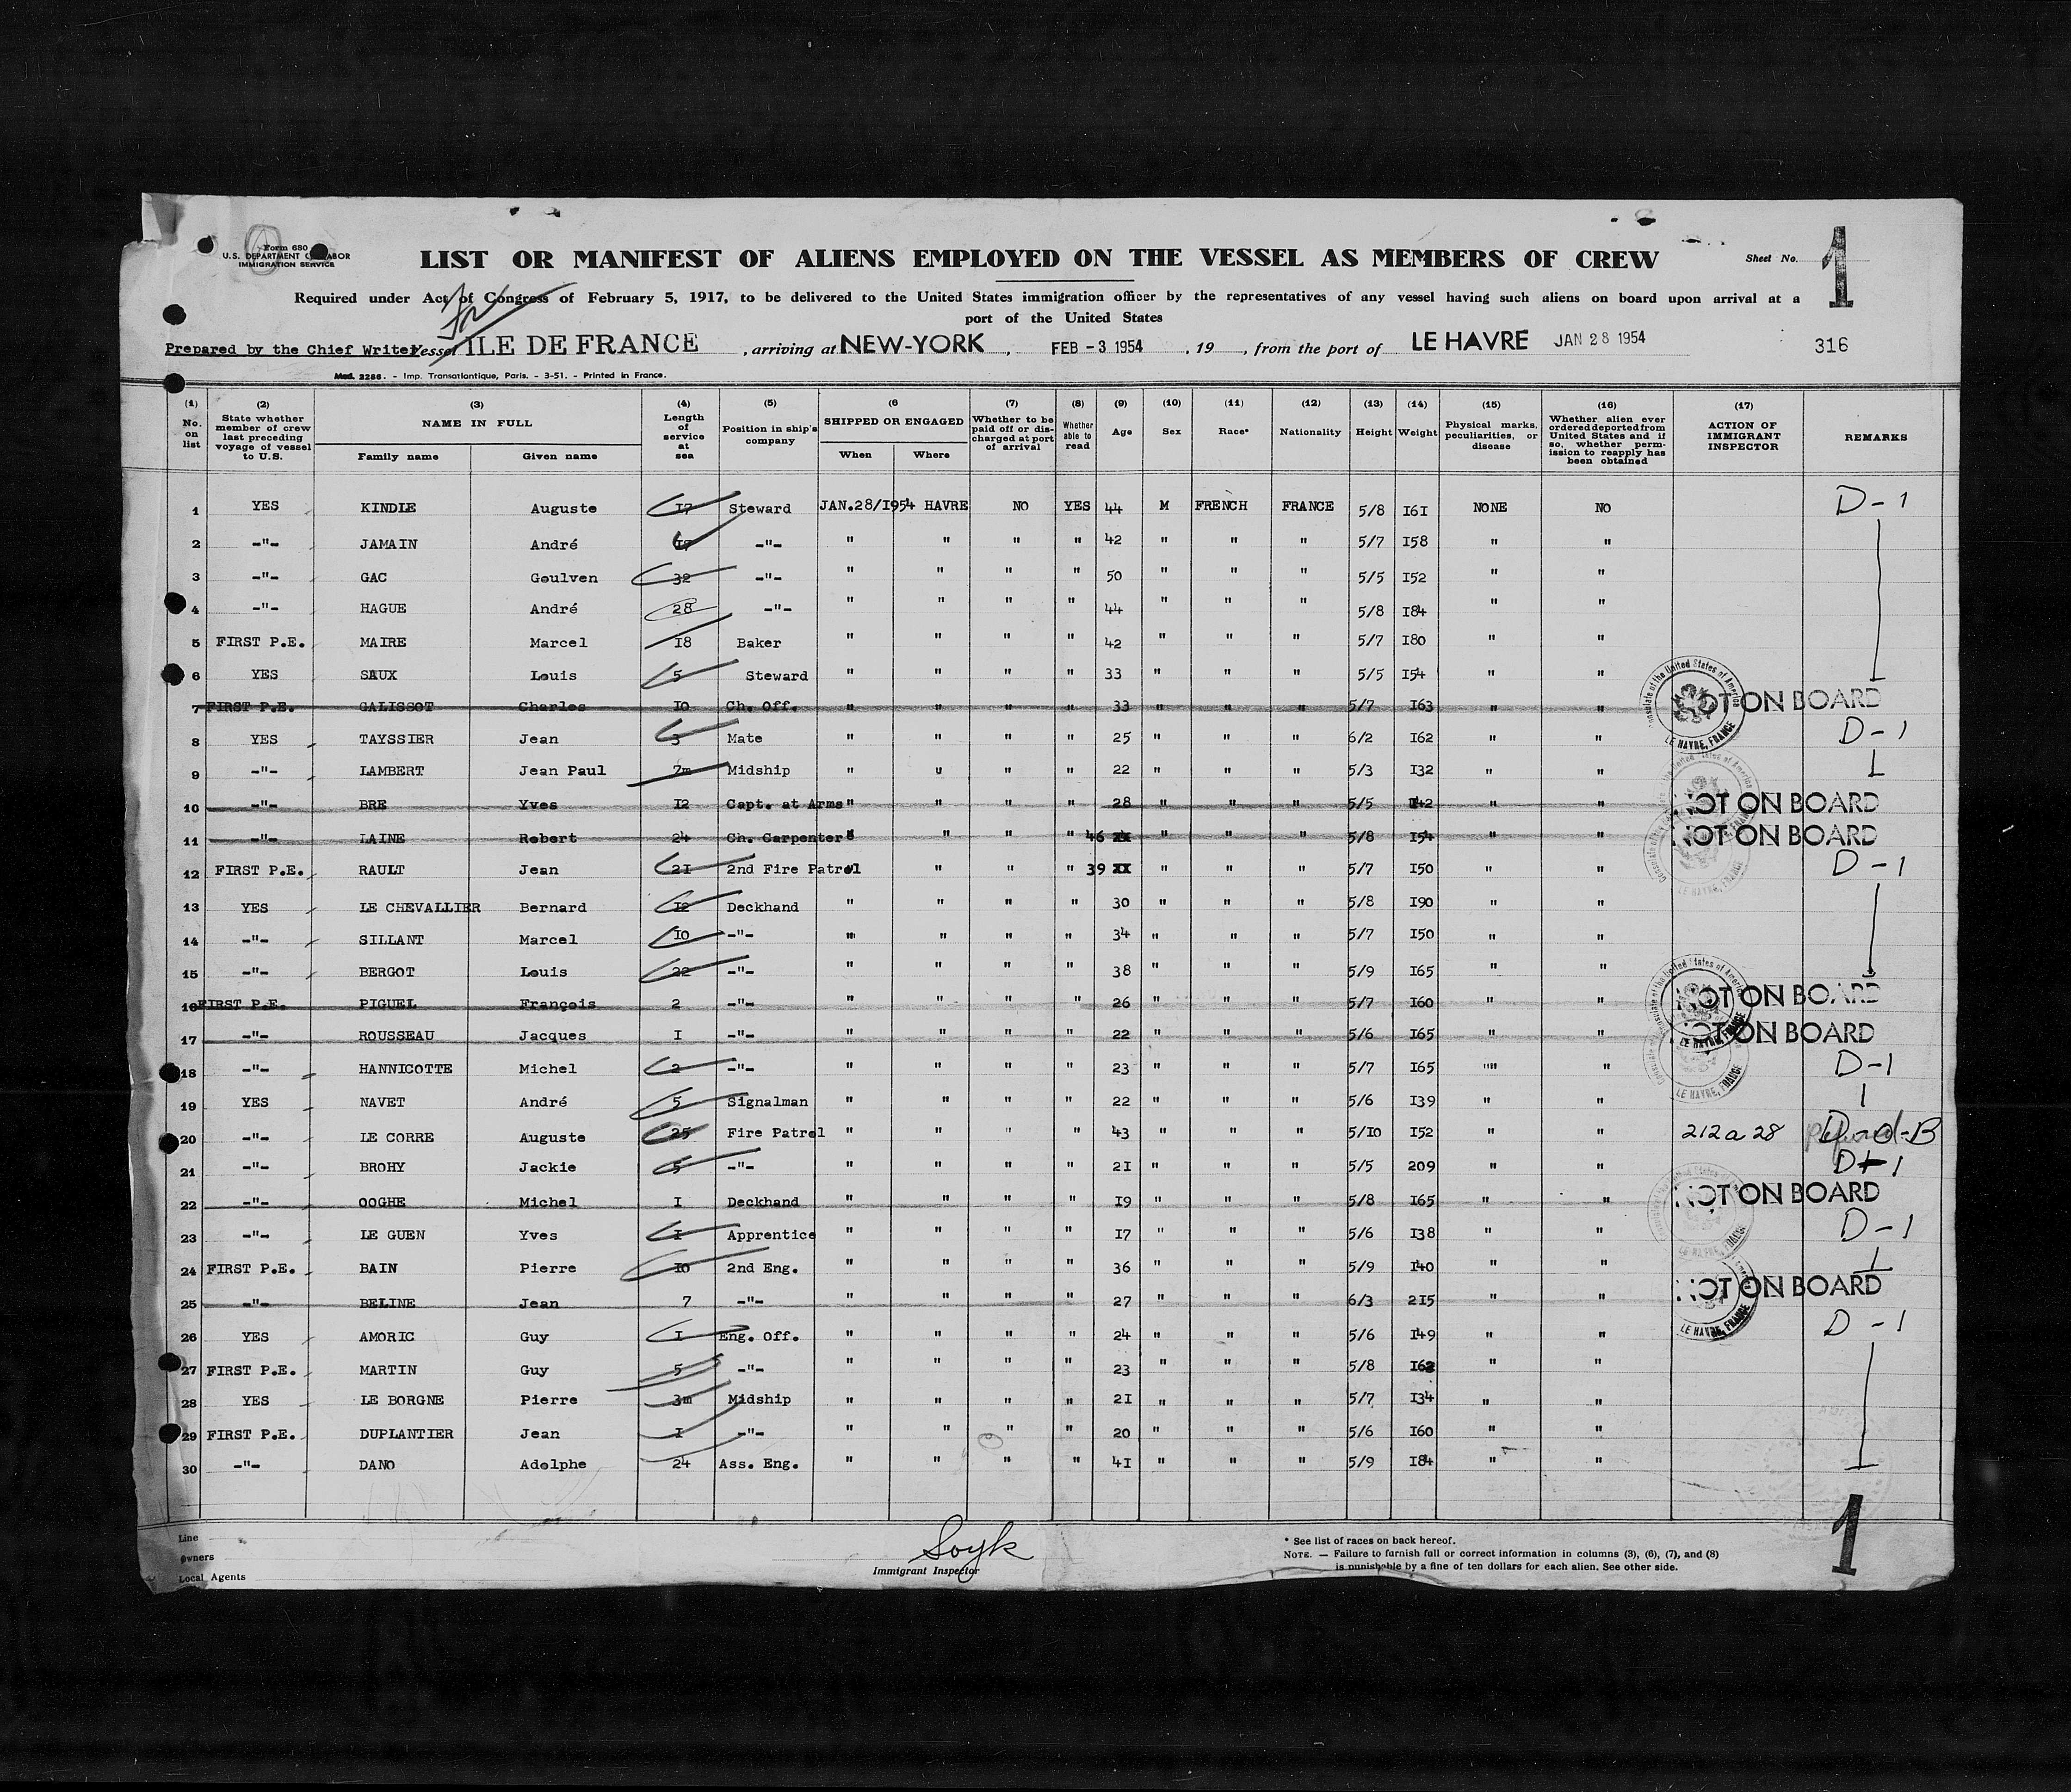 Form 680
U.S. DEPARTMENT OF LABOR
IMMIGRATION SERVICE
LIST OR MANIFEST OF ALIENS EMPLOYED ON THE VESSEL AS MEMBERS OF CREW
Sheet No. 1
Required under Act of Congress of February 5, 1917, to be delivered to the United States immigration officer by the representatives of any vessel having such aliens on board upon arrival at a
port of the United States
Prepared by the Chief Writer Vessel ILE DE FRANCE , arriving at NEW-YORK , FEB -3 1954 , 19 , from the port of LE HAVRE JAN 28 1954 316
Mod. 2286. - Imp. Transatlantique, Paris. - 3-51. - Printed in France.
(1) No. on list (2) State whether member of crew last preceding voyage of vessel to U.S. (3) NAME IN FULL Family name Given name (4) Length of service at sea (5) Position in ship's company (6 SHIPPED OR ENGAGED When Where (7) Whether to be paid off or discharged at port of arrival (8) Whether able to read (9) Age (10) Sex (11) Race* (12) Nationality (13) Height (14) Weight (15) Physical marks, peculiarities, or disease (16) Whether alien ever ordered deported from United States and if so, whether permission to reapply has been obtained (17) ACTION OF IMMIGRANT INSPECTOR REMARKS
1 YES KINDLE Auguste 17 Steward JAN.28/1954 HAVRE NO YES 44 M FRENCH FRANCE 5/8 161 NONE NO D-1
2 -"- JAMAIN André 17 -"- " " " " 42 " " " 5/7 158 " "
3 -"- GAC Goulven 32 -"- " " " " 50 " " " 5/5 152 " "
4 -"- HAGUE André 28 -"- " " " " 44 " " " 5/8 184 " "
5 FIRST P.E. MAIRE Marcel 18 Baker " " " " 42 " " " 5/7 180 " "
6 YES SAUX Louis 5 Steward " " " " 33 " " " 5/5 154 " "
7 FIRST P.E. GALISSOT Charles 10 Ch. Off. " " " " 33 " " " 5/7 163 " " NOT ON BOARD
8 YES TAYSSIER Jean 3 Mate " " " " 25 " " " 6/2 162 " " D-1
9 -"- LAMBERT Jean Paul 7m Midship " " " " 22 " " " 5/3 132 " "
10 -"- BRE Yves 12 Capt. at Arms " " " " 28 " " " 5/5 142 " " NOT ON BOARD
11 -"- LAINE Robert 24 Ch. Carpenter " " " " 46 xx " " " 5/8 154 " " NOT ON BOARD
12 FIRST P.E. RAULT Jean 21 2nd Fire Patrol " " " 39 xx " " " 5/7 150 " " D-1
13 YES LE CHEVALLIER Bernard 12 Deckhand " " " " 30 " " " 5/8 190 " "
14 -"- SILLANT Marcel 10 -"- " " " " 34 " " " 5/7 150 " "
15 -"- BERGOT Louis 22 -"- " " " " 38 " " " 5/9 165 " "
16 FIRST P.E. PIGUEL François 2 -"- " " " " 26 " " " 5/7 160 " " NOT ON BOARD
17 -"- ROUSSEAU Jacques 1 -"- " " " " 22 " " " 5/6 165 " " NOT ON BOARD
18 -"- HANNICOTTE Michel 2 -"- " " " " 23 " " " 5/7 165 "" " D-1
19 YES NAVET André 5 Signalman " " " " 22 " " " 5/6 139 " "
20 -"- LE CORRE Auguste 25 Fire Patrol " " " " 43 " " " 5/10 152 " " 212a28 D-O-B
21 -"- BROHY Jackie 5 -"- " " " " 21 " " " 5/5 209 " " D-1
22 -"- OOGHE Michel 1 Deckhand " " " " 19 " " " 5/8 165 " " NOT ON BOARD
23 -"- LE GUEN Yves 1 Apprentice " " " " 17 " " " 5/6 138 " " D-1
24 FIRST P.E. BAIN Pierre 10 2nd Eng. " " " " 36 " " " 5/9 140 " "
25 -"- BELINE Jean 7 -"- " " " " 27 " " " 6/3 215 " " NOT ON BOARD
26 YES AMORIC Guy 1 Eng. Off. " " " " 24 " " " 5/6 149 " " D-1
27 FIRST P.E. MARTIN Guy 5 -"- " " " " 23 " " " 5/8 162 " "
28 YES LE BORGNE Pierre 3m Midship " " " " 21 " " " 5/7 134 " "
29 FIRST P.E. DUPLANTIER Jean 1 -"- " " " " 20 " " " 5/6 160 " "
30 -"- DANO Adolphe 24 Ass. Eng. " " " " 41 " " " 5/9 184 " "
Consulate of the United States of America LE HAVRE, FRANCE
1
Line
Owners
Local Agents
Soyk
Immigrant Inspector
* See list of races on back hereof.
NOTE. — Failure to furnish full or correct information in columns (3), (6), (7), and (8)
is punishable by a fine of ten dollars for each alien. See other side.